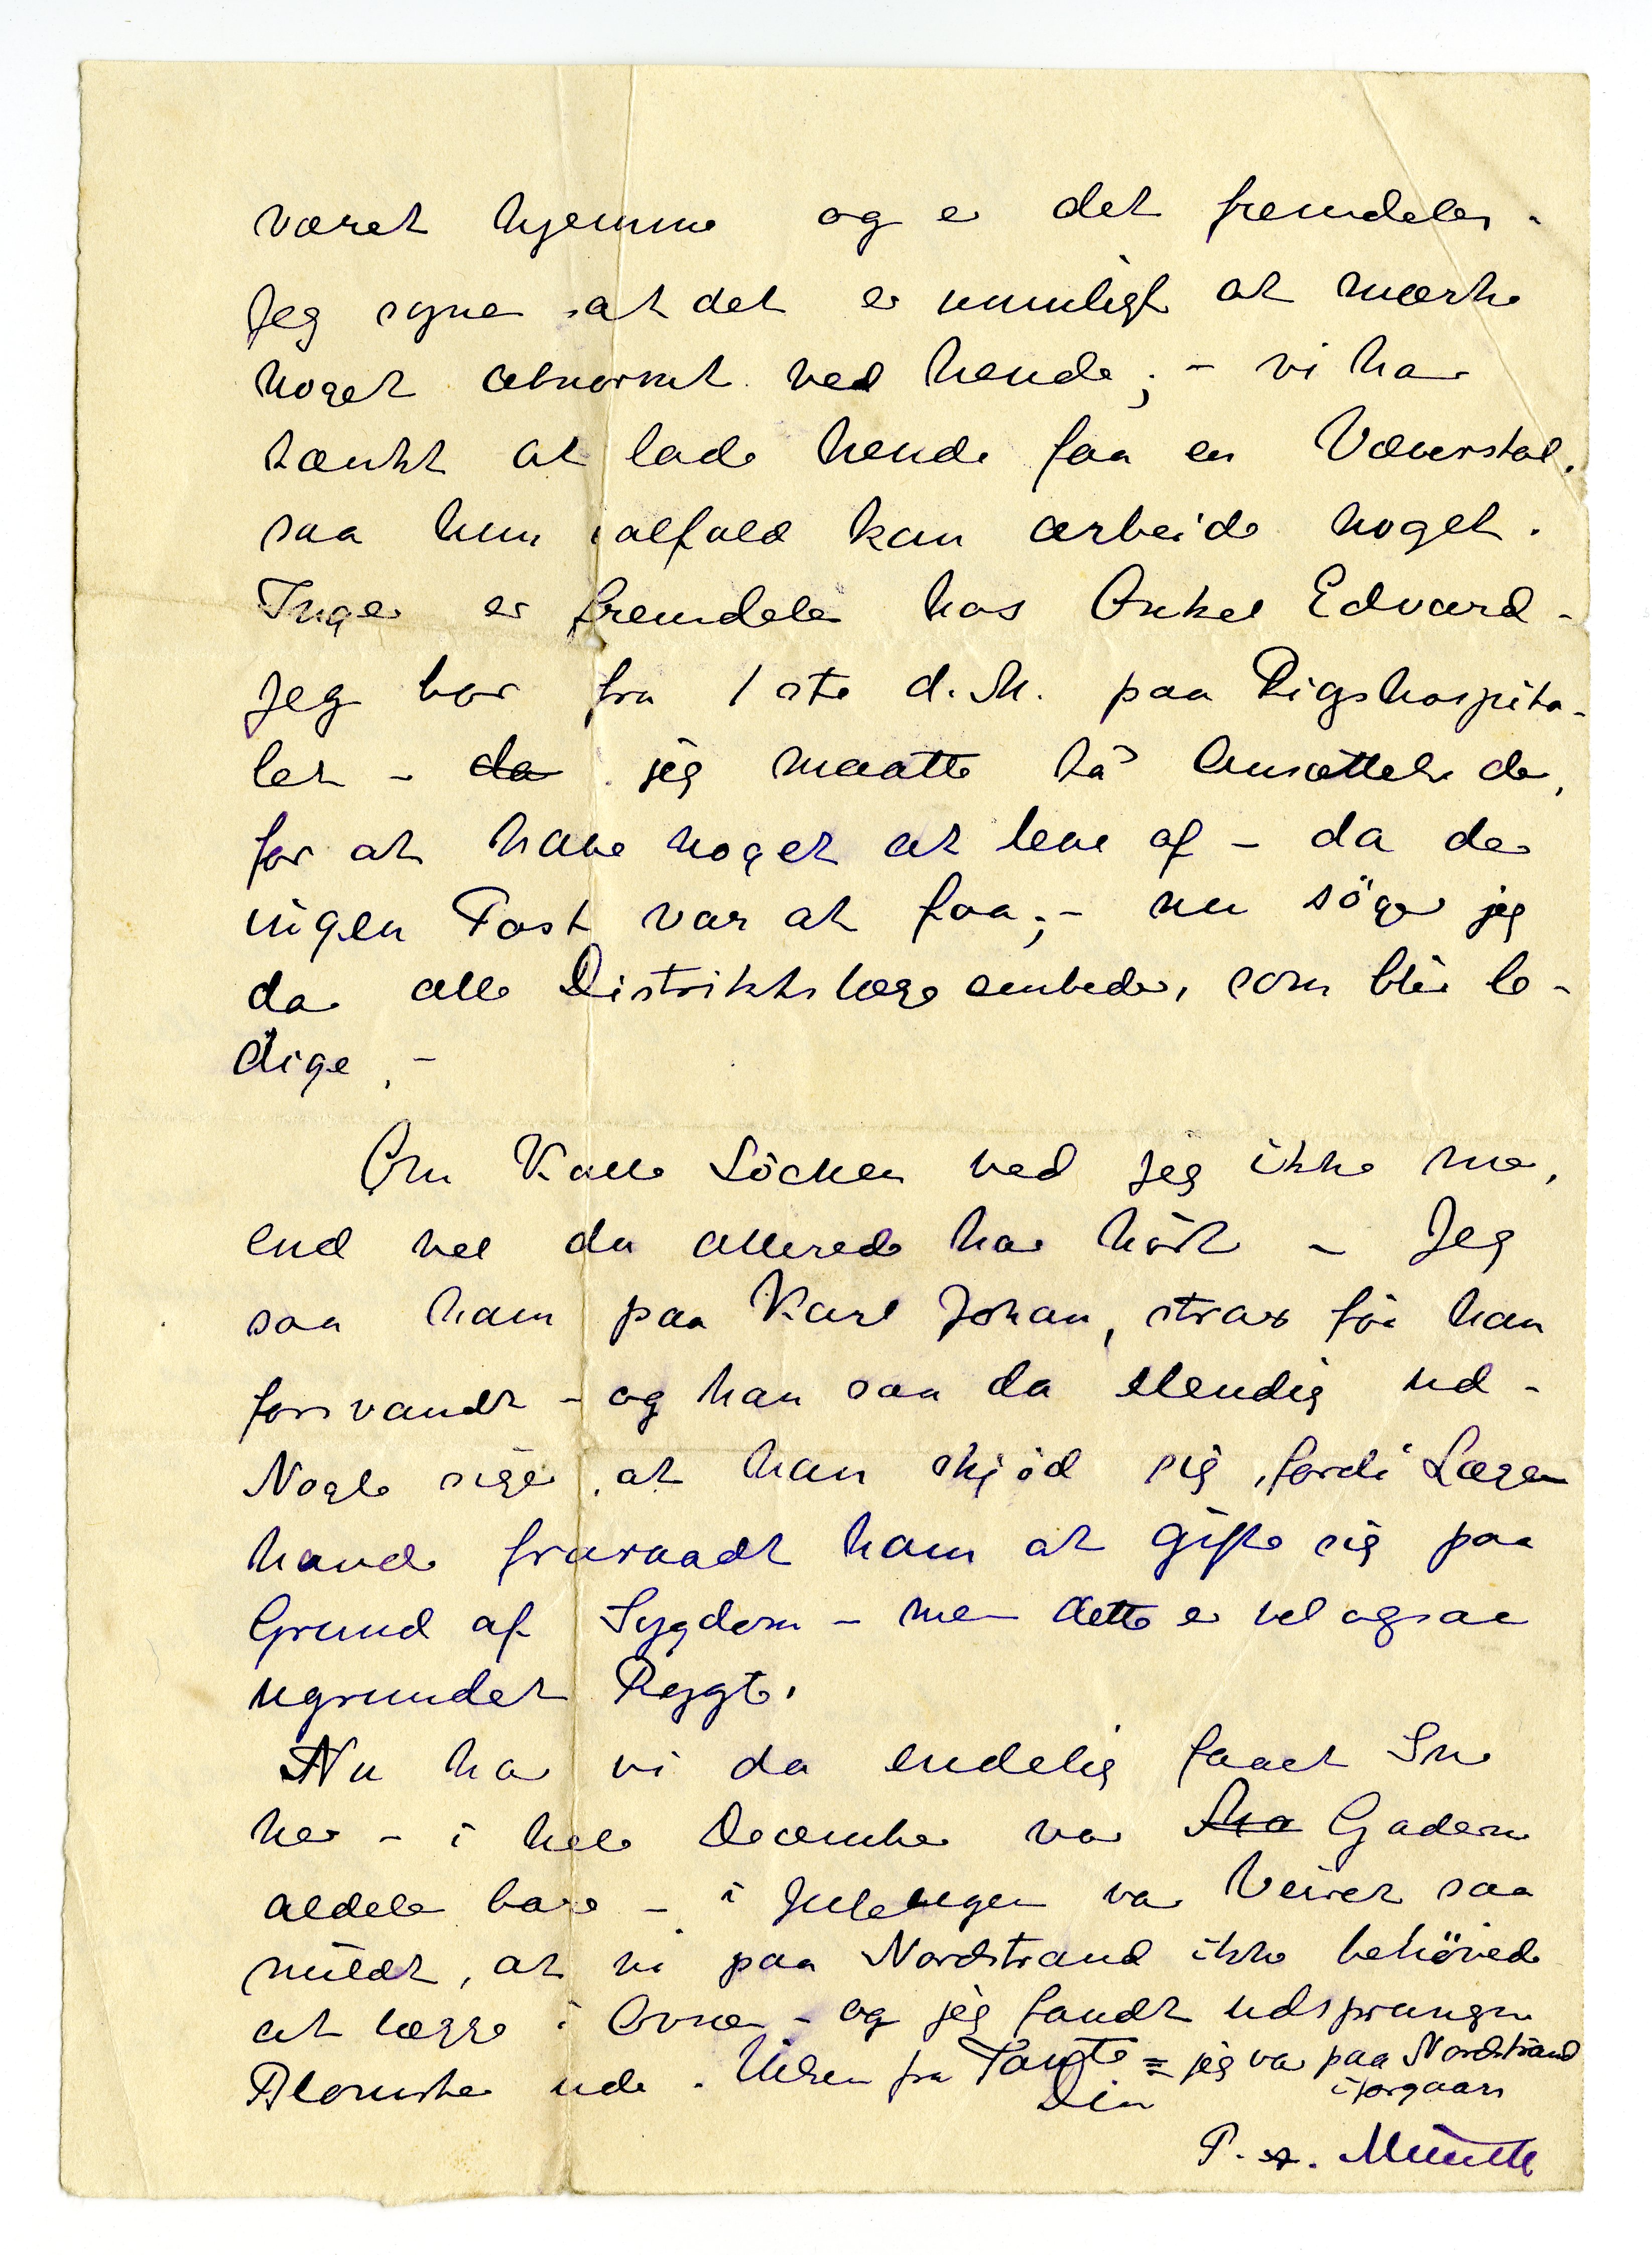 været hjemme og er det fremdeles.
Jeg synes at det er umuligt at mærke
noget abnormt ved hende; – vi har
tænkt at lade hende faa en Væverstol.
saa hun ialfald kan arbeide noget.
Inger er fremdeles hos Onkel Edvard –
Jeg bor fra 1ste d. M. paa Rigshospita-
let – da jeg maatte ta Ansættelse der,
for at have noget at leve af – da der
ingen Post var at faa; – nu söger jeg
da alle Distriktslægeembeder, som blir le-
dige, –
Om Kalle Löchen ved jeg ikke mer,
end vel du allerede har hört – Jeg
saa ham paa Karl Johan, strax för han
forsvandt – og han saa da elendig ud –
Nogle siger, at han skjöd sig, fordi Lægen
havde fraraadt ham at gifte sig paa
Grund af Sygdom – men dette er vel ogsaa
ugrundet Rygte.
Nu har vi da endelig faaet Sne
her – i hele December var Gaderne
aldeles bare – i Juleugen var Veiret saa
mildt, at vi paa Nordstrand ikke behövede
at lægge i Ovnen – og jeg fandt udsprungne
Blomster ude. Hilsen fra Tante = jeg var paa Nordstrand
iforgaars
Din
P. A. Munch